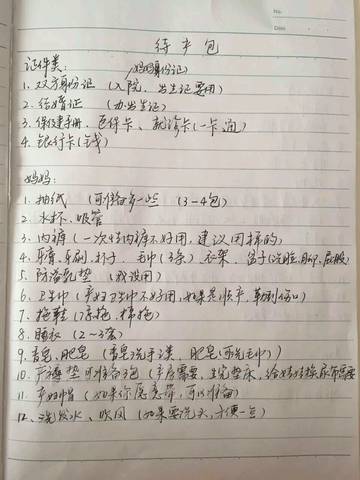 No.
Date
待产包
证件类: 妈妈身份证)
1. 双方身份证 (入院、出生证要用)
2. 结婚证 (办出生证)
3. 保健手册、医保卡、就诊卡(一卡通)
4. 银行卡(钱)
妈妈:
1. 抽纸 (可准备多一些 (3-4包)
2. 水杯、吸管
3. 内裤 (一次性内裤不好用,建议用棉的)
4. 牙膏、牙刷、杯子、毛巾(3条) 衣架、盆子(洗脸、脚、屁股)
5. 防溢乳垫 (我没用)
6. 卫生巾 (产妇卫生巾不好用,如果是顺产,勒到伤口)
7. 拖鞋 (凉拖、棉拖)
8. 睡衣 (2-3套)
9. 香皂、肥皂 (香皂洗手洗澡、肥皂可洗毛巾)
10. 产褥垫 可准备包 (产房需要,垫床,给娃娃换尿布需要
11. 产妇帽 (如果你愿意带,可以准备)
12. 洗发水、吹风 (如果要洗头,方便一点)